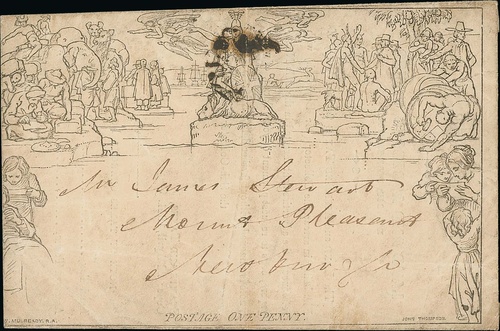 Mr James Stewart
Mount Pleasant
Newburgh
W. MULREADY, R.A.
POSTAGE ONE PENNY.
JOHN THOMPSON